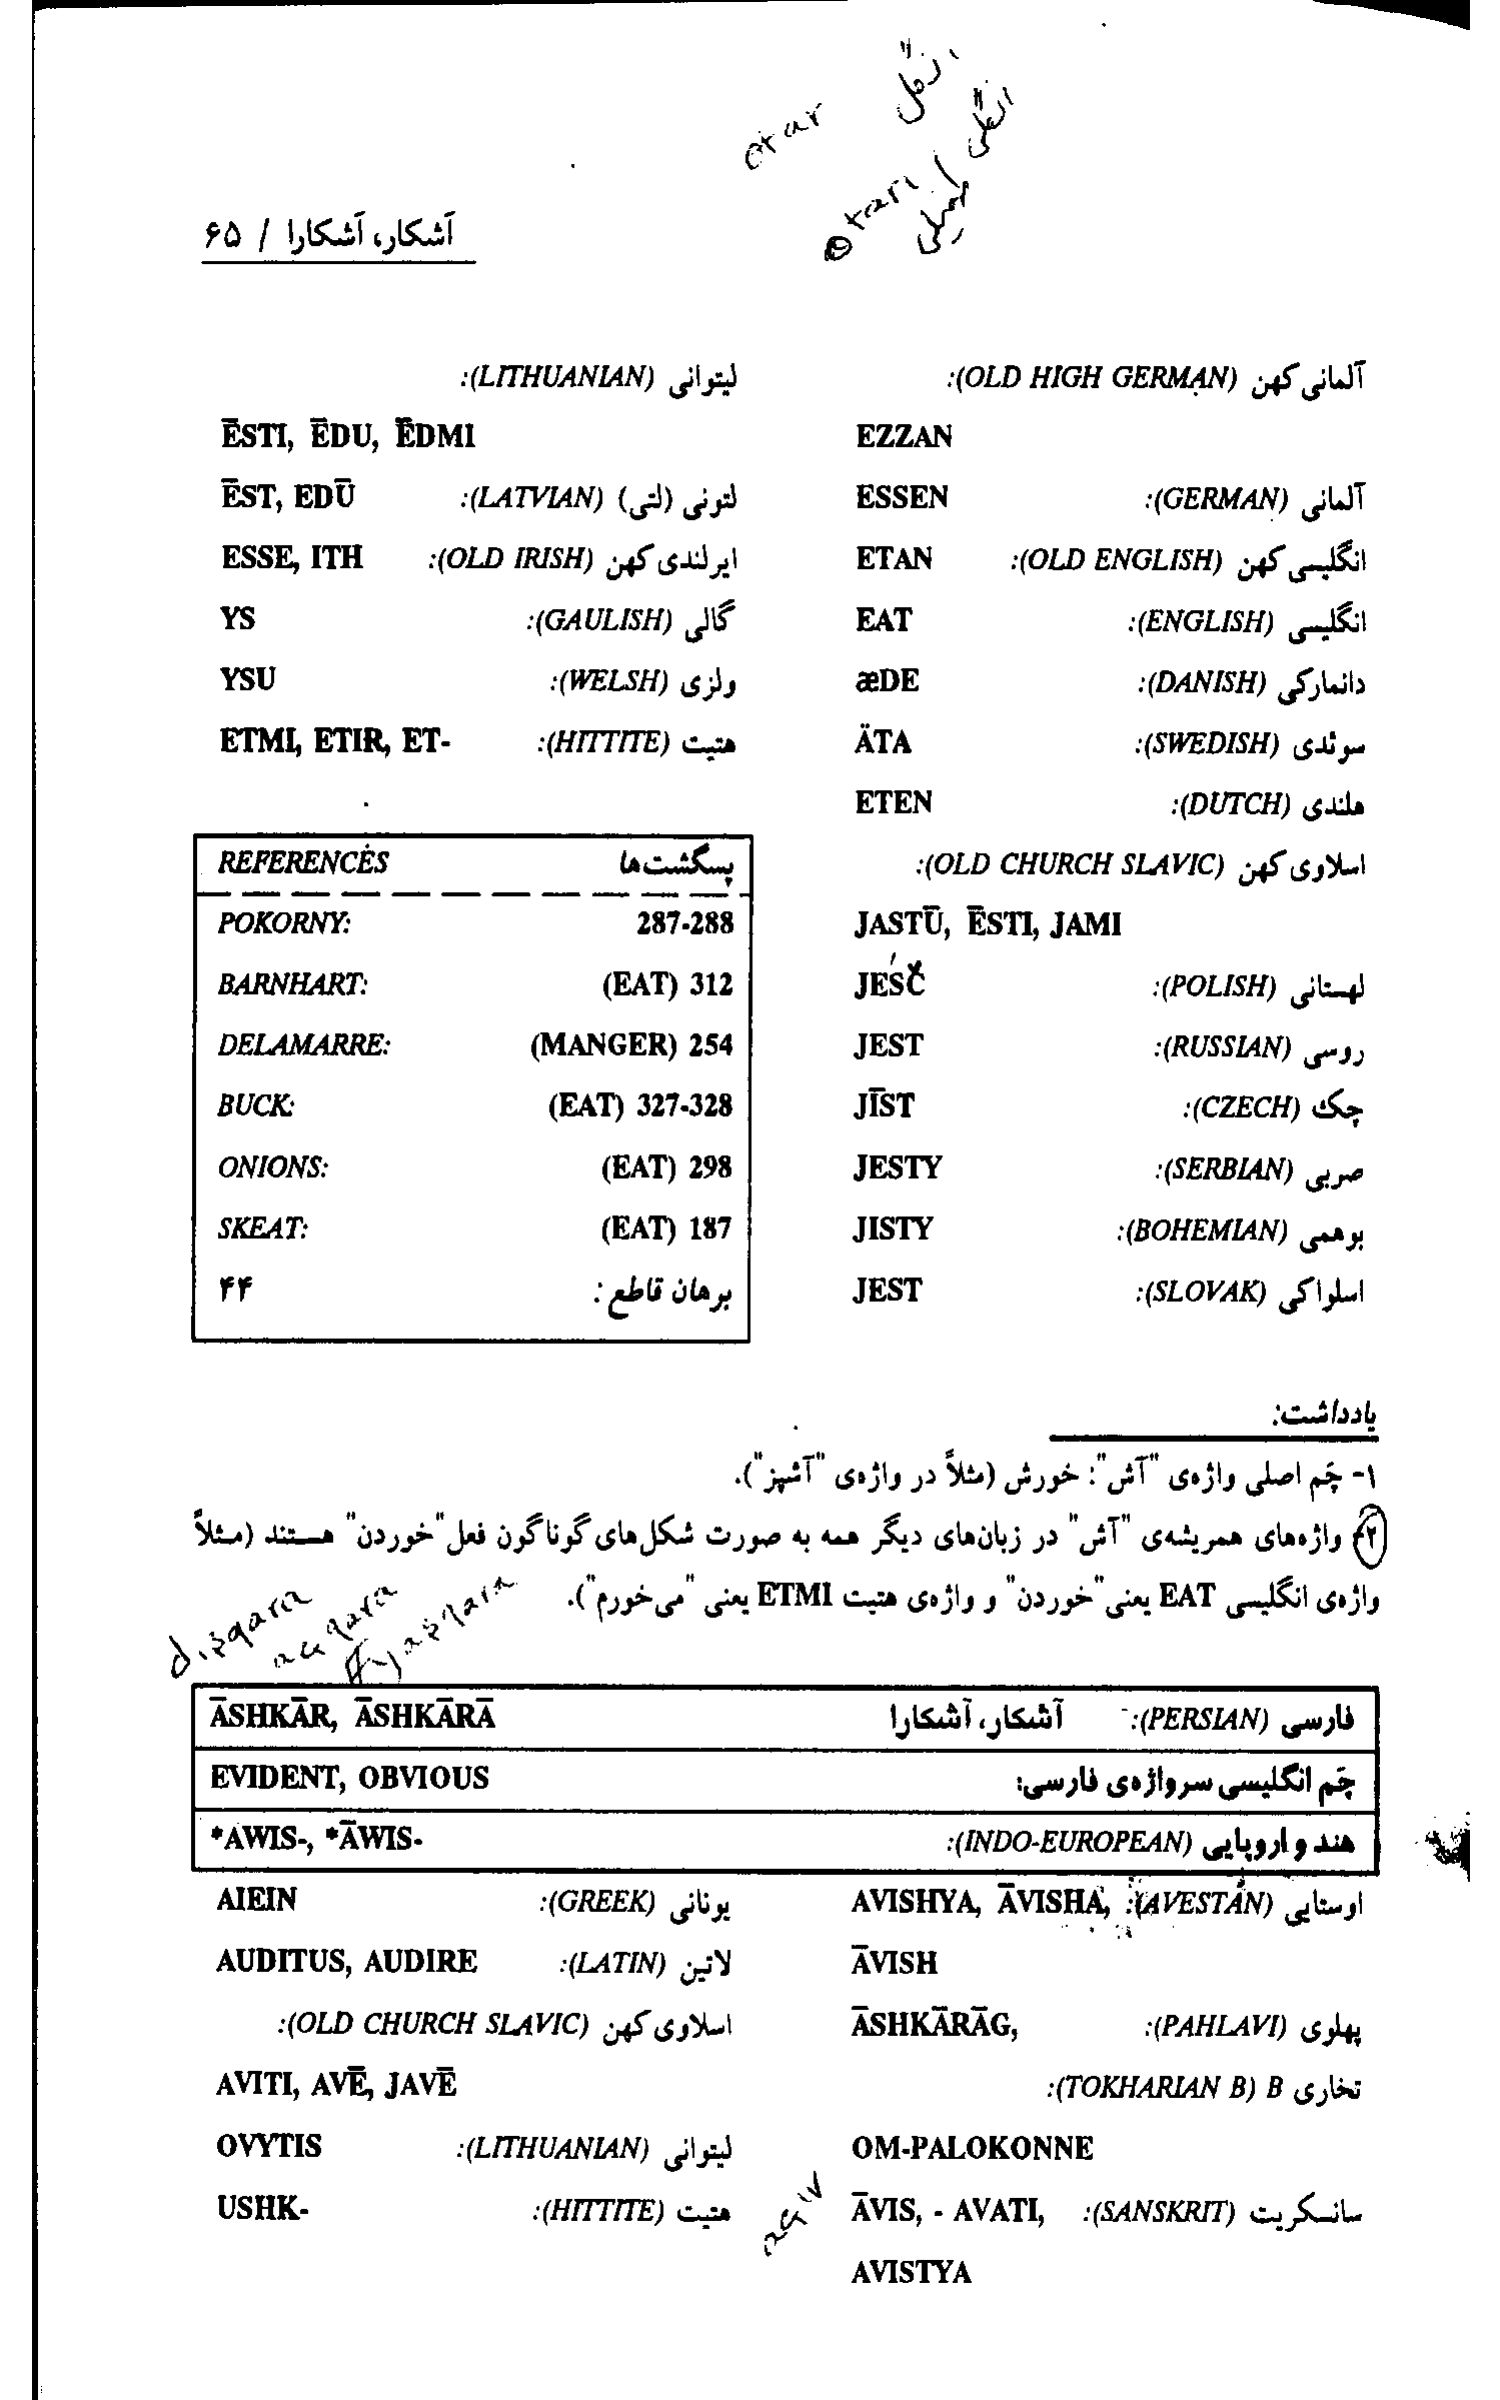 otar
otari
آشکار، آشکارا / ۶۵
آلمانی کهن (OLD HIGH GERMAN):
EZZAN
آلمانی (GERMAN): ESSEN
انگلیسی کهن (OLD ENGLISH): ETAN
انگلیسی (ENGLISH): EAT
دانمارکی (DANISH): æDE
سوئدی (SWEDISH): ÄTA
هلندی (DUTCH): ETEN
اسلاوی کهن (OLD CHURCH SLAVIC):
JASTŪ, ĒSTI, JAMI
لهستانی (POLISH): JEŚČ
روسی (RUSSIAN): JEST
چک (CZECH): JĪST
صربی (SERBIAN): JESTY
بوهمی (BOHEMIAN): JISTY
اسلواکی (SLOVAK): JEST
لیتوانی (LITHUANIAN):
ĒSTI, ĒDU, ĒDMI
لتونی (لتی) (LATVIAN): ĒST, EDŪ
ایرلندی کهن (OLD IRISH): ESSE, ITH
گالی (GAULISH): YS
ولزی (WELSH): YSU
هتیت (HITTITE): ETMI, ETIR, ET-
پسگشت‌ها REFERENCES
POKORNY: 287-288
BARNHART: (EAT) 312
DELAMARRE: (MANGER) 254
BUCK: (EAT) 327-328
ONIONS: (EAT) 298
SKEAT: (EAT) 187
برهان قاطع : ۴۴
یادداشت:
۱- چَم اصلی واژه‌ی "آش": خورش (مثلاً در واژه‌ی "آشپز").
۲- واژه‌های همریشه‌ی "آش" در زبان‌های دیگر همه به صورت شکل‌های گوناگون فعل "خوردن" هستند (مثلاً
واژه‌ی انگلیسی EAT یعنی "خوردن" و واژه‌ی هتیت ETMI یعنی "می‌خورم").
فارسی (PERSIAN): آشکار، آشکارا ĀSHKĀR, ĀSHKĀRĀ
چَم انگلیسی سرواژه‌ی فارسی: EVIDENT, OBVIOUS
هند و اروپایی (INDO-EUROPEAN): *AWIS-, *ĀWIS-
اوستایی (AVESTAN): AVISHYA, ĀVISHA,
ĀVISH
پهلوی (PAHLAVI): ĀSHKĀRĀG,
تخاری B (TOKHARIAN B):
OM-PALOKONNE
سانسکریت (SANSKRIT): ĀVIS, - AVATI,
AVISTYA
یونانی (GREEK): AIEIN
لاتین (LATIN): AUDITUS, AUDIRE
اسلاوی کهن (OLD CHURCH SLAVIC):
AVITI, AVĒ, JAVĒ
لیتوانی (LITHUANIAN): OVYTIS
هتیت (HITTITE): USHK-